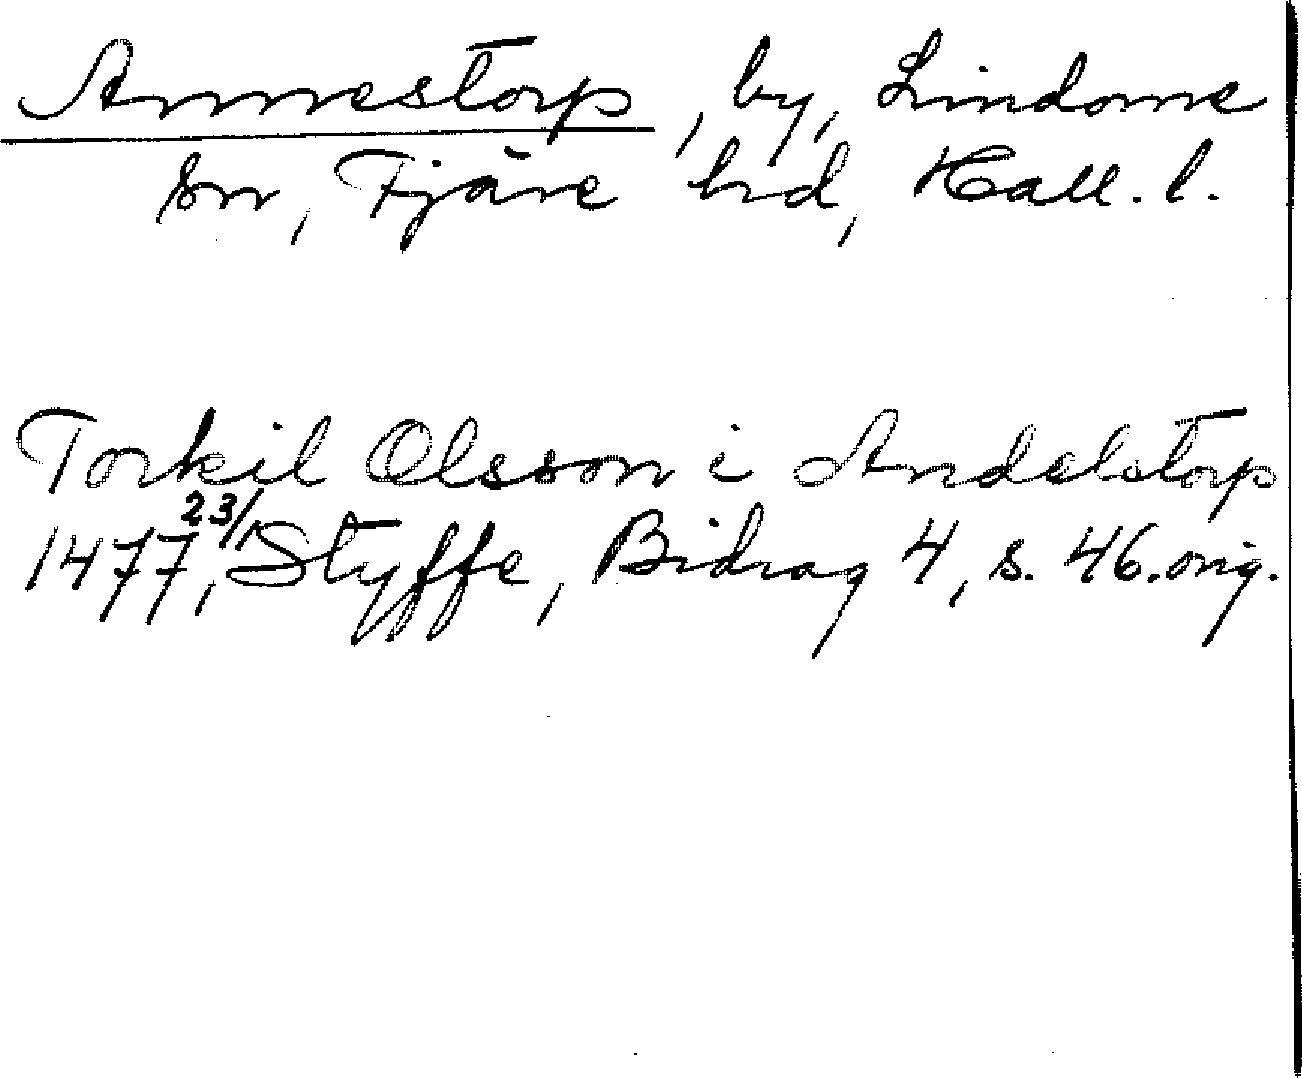 Annestorp, by, Lindome
sn, Fjäre hd, Hall. l.
Torkil Olsson i Andelstorp
1477 23/1, Styffe, Bidrag 4, s. 46. orig.